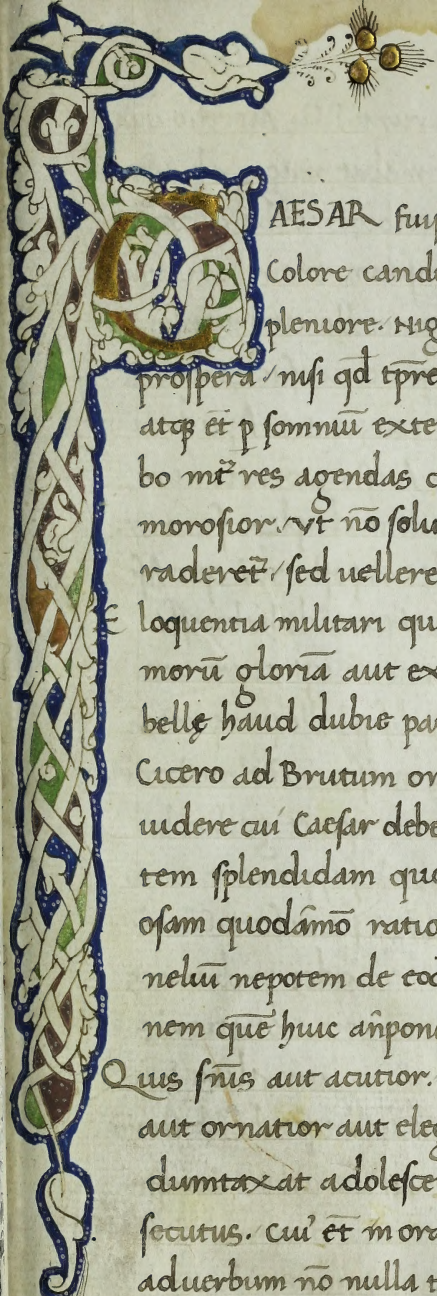 CAESAR fuiſ
Colore candi
pleniore. Nig
proſpera / niſi qd̄ tp̄re
atqꝫ et̄ ꝑ ſomniū exte
bo mr̄ res agendas c
moroſior. / vt nō ſolu
raderet̄ / ſed uellere
Eloquentia militari qu
morū gloriā aut ex
bellę haud dubie pa
Cicero ad Brutum or
uidere cui Caeſar debe
tem ſplendidam que
oſam quodāmō ratio
neliū nepotem de eod
nem quē huic an̄pon
Quis ſn̄iis aut acutior.
aut ornatior aut eleg
dumtaxat adoleſce
ſecutus. cui' et̄ in ora
aduerbum nō nulla t